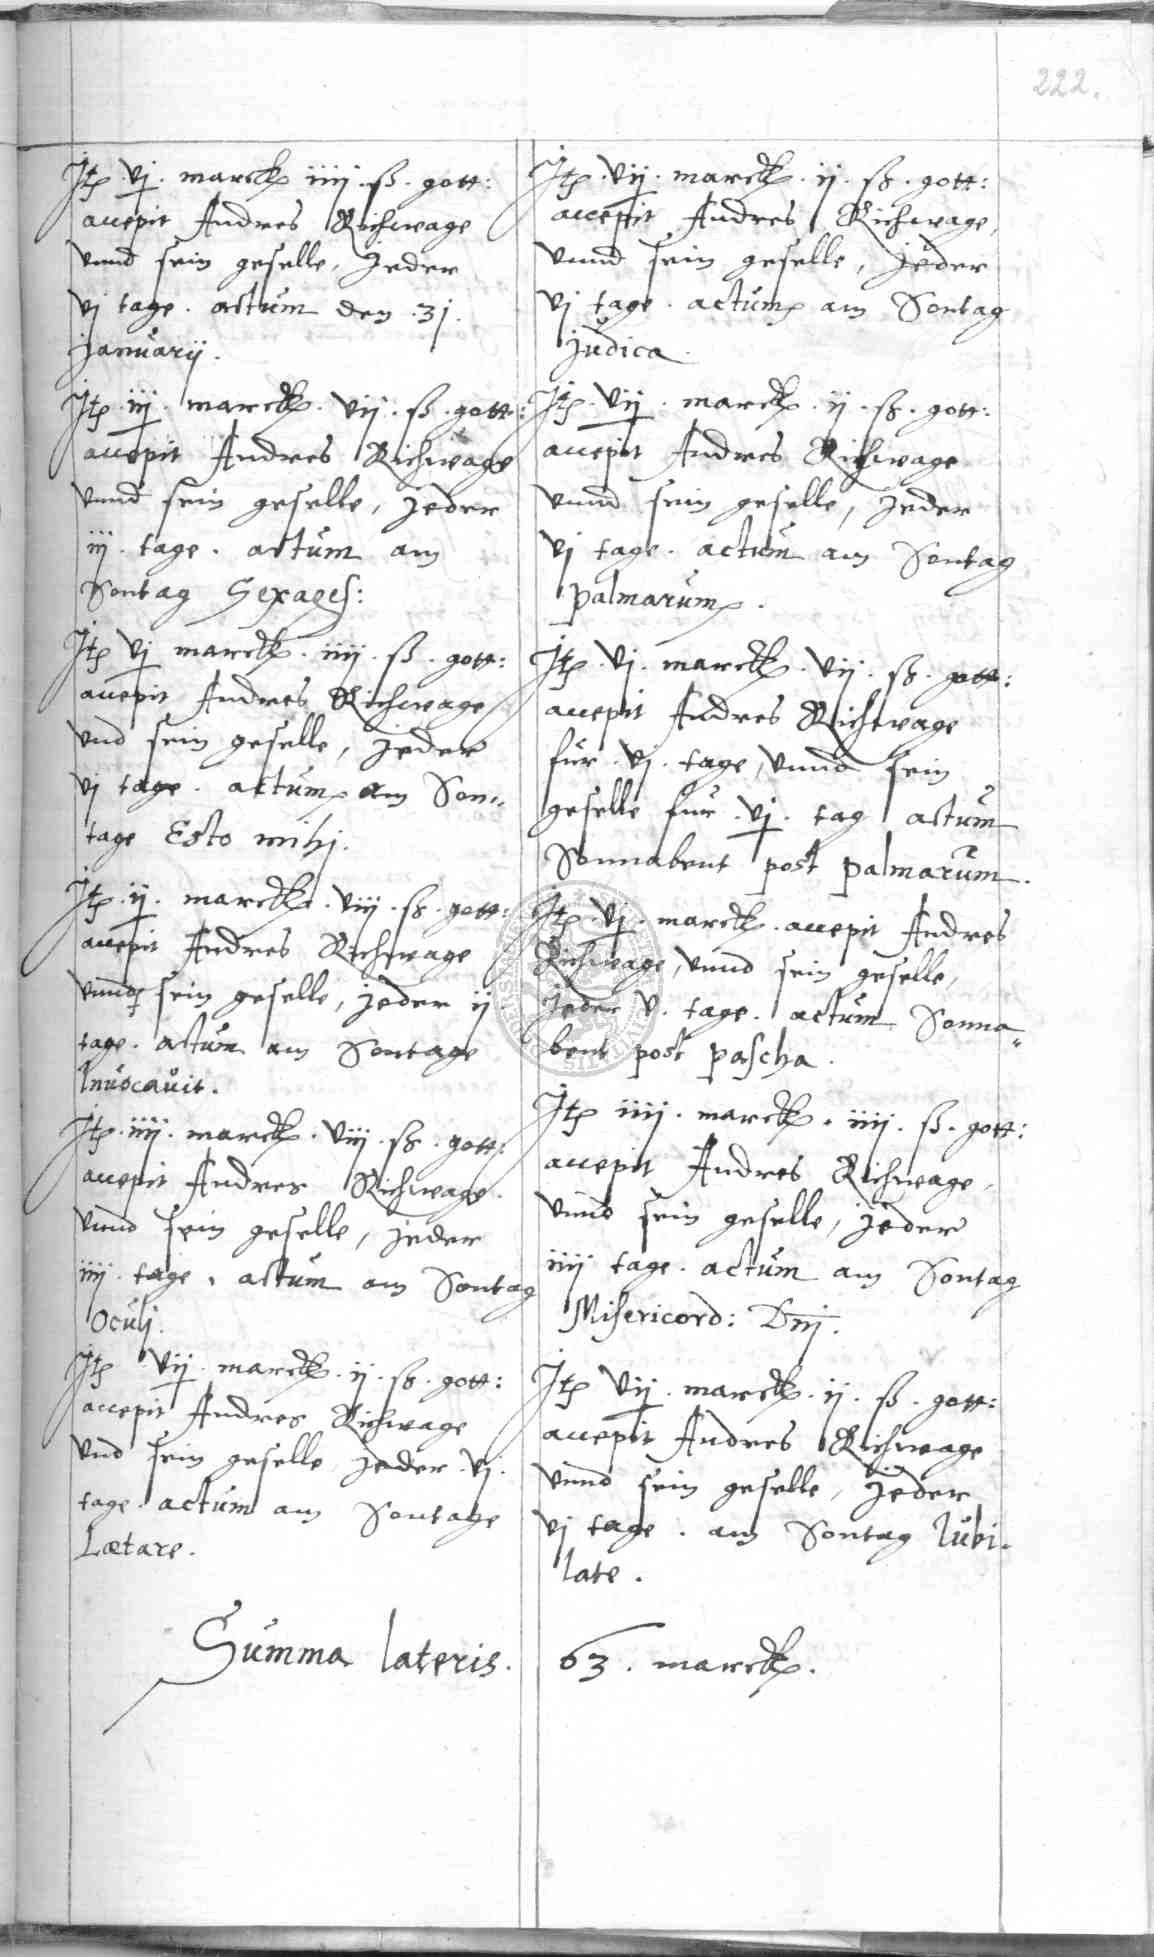 222.
Jtem vj marck iiij ß gott:
accepit Andres Richwage
vnnd sein geselle, jeder
vj tage. actum den .31.
Januarij.
Jtem iij marck. vij. ß. gott:
accepit Andres Richwage
vnnd sein geselle, jeder
iij. tage. actum am
Sontag Sexages:
Jtem vj marck. iiij. ß. gott:
accepit Andres Richwage
vnd sein geselle, jeder
vj tage. actum am Son„
tage Esto mihj.
Jtem ij. marck. viij. ß. gott:
accepit Andres Richwage
vnnd sein geselle, jeder ij
tage. actum am Sontage
Invocavit.
Jtem iiij. marck. viij. ß. gott:
accepit Andres Richwage.
vnnd sein geselle, jeder
iiij. tage. actum am Sontag
Oculj.
Jtem vij. marck. ij. ß. gott:
accepit Andres Richwage
vnd sein geselle jeder .vj.
tage. actum am Sontage
Lætare.
Jtem. vij. marck. ij. ß. gott:
accepit Andres Richwage,
vnnd sein geselle, jeder
vj tage. actum am Sontag
judica.
Jtem. vij. marck. ij. ß. gott:
accepit Andres Richwage
vnnd sein geselle, jeder
vj tage. actum am Sontag
palmarum.
Jtem. vj. marck. vij. ß. gott:
accepit Andres Richwage
fur. vj. tage, vnnd sein
geselle fur. vj. tag actum
Sonnabent post palmarum.
Jtem. vj. marck. accepit Andres
Richwage, vnnd sein geselle,
jeder v. tage. actum Sonna„
bent post pascha.
Jtem iiij. marck. iiij. ß. gott:
accepit Andres Richwage,
vnnd sein geselle, jeder
iiij tage. actum am Sontag
Misericord: Dnj.
Jtem vij. marck. ij. ß. gott:
accepit Andres Richwage
vnnd sein geselle, jeder
vj tage. am Sontag Iubi„
late.
Summa lateris. 63. marck.